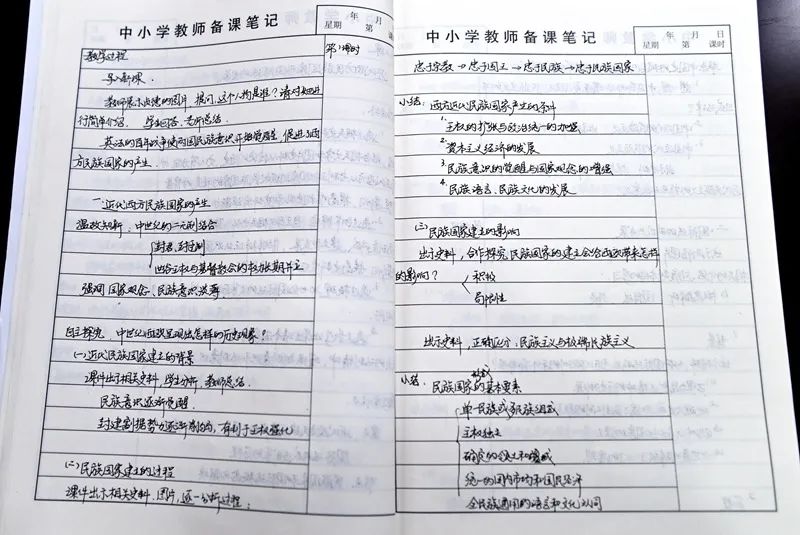 中小学教师备课笔记
年 月
星期 第 课
教学过程
第1课时
导入新课
教师展示贞德的图片 提问,这个人物是谁?请对她进
行简单介绍。 学生回答,老师总结。
英法的百年战争使两国民族意识开始觉醒,促进了西
方民族国家的产生.
一、近代西方民族国家的产生
温故知新,中世纪的二元制结合
封君、封臣制
世俗王权与基督教会的
强调 国家观念、民族意识淡薄
自主探究,中世纪西欧呈现出怎样的历史现象?
(一)近代民族国家建立的背景
课件出示相关史料,学生分析,教师总结.
民族意识逐渐觉醒.
封建割据势力逐渐削弱,有利于王权强化
(二)民族国家建立的过程
课件出示相关史料、图片,逐一分析过程.
中小学教师备课笔记
年 月 日
星期 第 课时
忠于宗教→忠于国王→忠于民族→忠于民族国家
小结:西方近代民族国家产生的条件
1.王权的扩张与政治统一的加强
2.资本主义经济的发展
3.民族意识的觉醒与国家观念的增强
4.民族语言、民族文化的发展
(三)民族国家建立的影响
出示史料,合作探究,民族国家的建立会给西欧带来怎样
的影响?
积极
局限性
出示史料,正确区分,民族主义与极端民族主义
小结. 民族国家的基本要素
单一民族或多民族组成
主权独立
确定的领土和疆域
统一的国内市场和国民经济
全民族通用的语言和文化认同